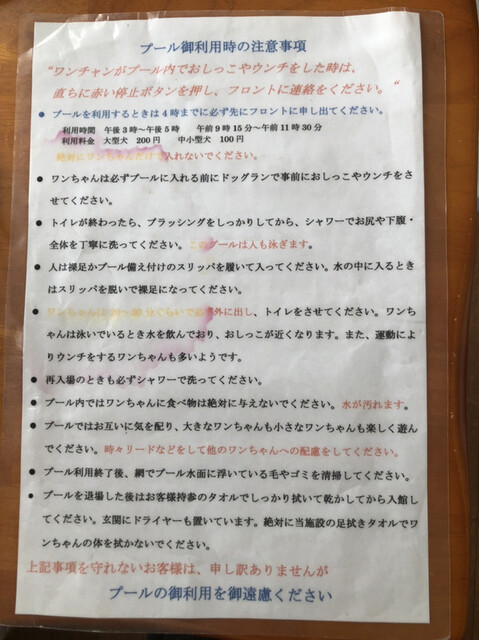 プール御利用時の注意事項
“ワンチャンがプール内でおしっこやウンチをした時は、
直ちに赤い停止ボタンを押し、フロントに連絡をください。“
● プールを利用するときは4時までに必ず先にフロントに申し出てください。
利用時間 午後3時～午後5時 午前9時15分～午前11時30分
利用料金 大型犬 200円 中小型犬 100円
絶対にワンちゃんだけで入れないでください。
● ワンちゃんは必ずプールに入れる前にドッグランで事前におしっこやウンチをさ
せてください。
● トイレが終わったら、ブラッシングをしっかりしてから、シャワーでお尻や下腹・
全体を丁寧に洗ってください。このプールは人も泳ぎます。
● 人は裸足かプール備え付けのスリッパを履いて入ってください。水の中に入るとき
はスリッパを脱いで裸足になってください。
● ワンちゃんは20～30分ぐらいで必ず外に出し、トイレをさせてください。ワンち
ゃんは泳いでいるとき水を飲んでおり、おしっこが近くなります。また、運動によ
りウンチをするワンちゃんも多いようです。
● 再入場のときも必ずシャワーで洗ってください。
● プール内ではワンちゃんに食べ物は絶対に与えないでください。水が汚れます。
● プールではお互いに気を配り、大きなワンちゃんも小さなワンちゃんも楽しく遊ん
でください。時々リードなどをして他のワンちゃんへの配慮をしてください。
● プール利用終了後、網でプール水面に浮いている毛やゴミを清掃してください。
● プールを退場した後はお客様持参のタオルでしっかり拭いて乾かしてから入館し
てください。玄関にドライヤーも置いています。絶対に当施設の足拭きタオルでワ
ンちゃんの体を拭かないでください。
上記事項を守れないお客様は、申し訳ありませんが
プールの御利用を御遠慮ください